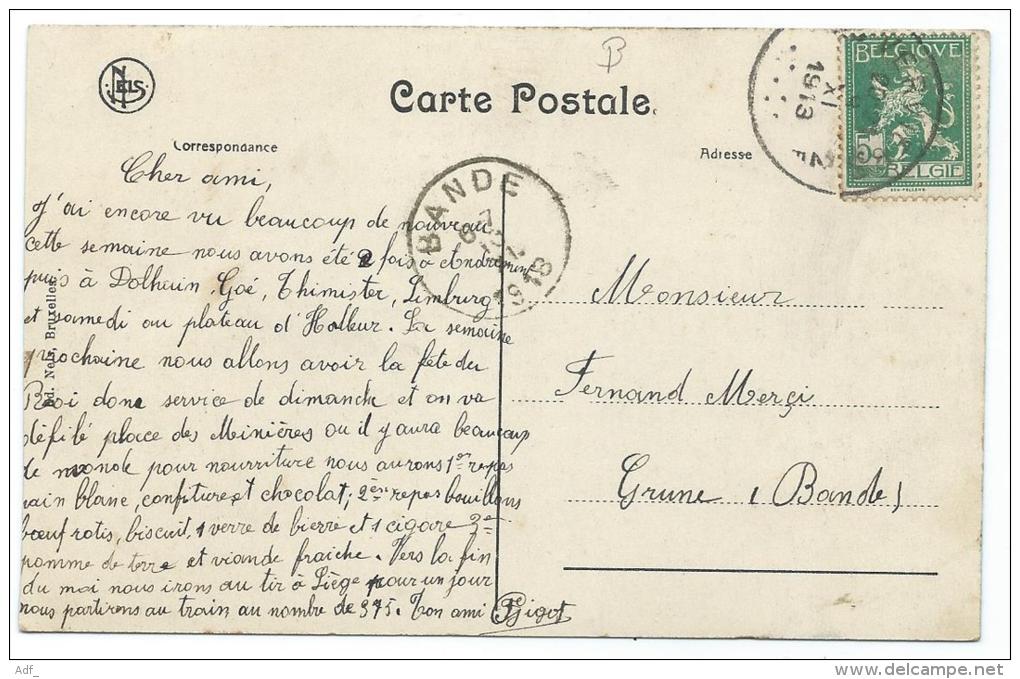 B
NELS
Carte Postale.
Correspondance
Adresse
BELGIQUE
5
BELGIË
XI
1913
BANDE
1913
Cher ami,
J'ai encore vu beaucoup de nouveau
cette semaine nous avons été 2 fois à Andrimont
puis à Dolhain, Goé, Thimister, Limburg
et samedi au plateau d'Halleur. La semaine
prochaine nous allons avoir la fête du
Roi donc service de dimanche et on va
défilé place des Minières ou il y aura beaucoup
de monde pour nourriture nous aurons 1er repas
pain blanc, confiture et chocolat; 2ème repas bouillons
bœuf rotis, biscuit, 1 verre de bierre et 1 cigare 3e
pomme de terre et viande fraiche. Vers la fin
du moi nous irons au tir à Liège pour un jour
nous partirons au train au nombre de 375. Ton ami Gigot
Monsieur
Fernand Merçi
Grune (Bande)
Ed. Nels, Bruxelles.
Adf_
www.delcampe.net